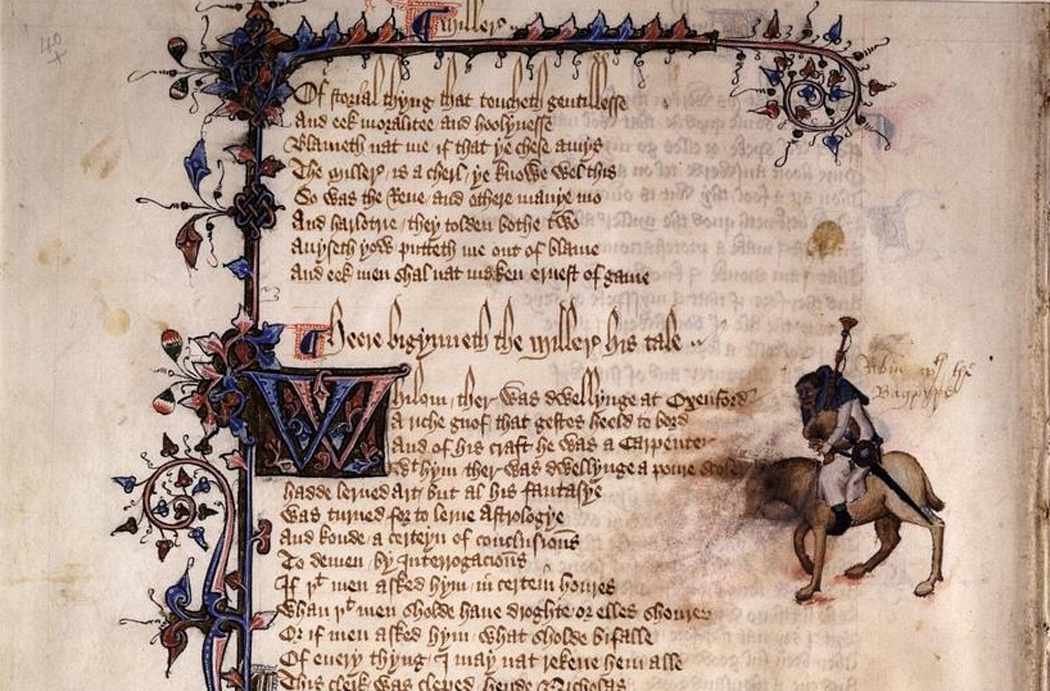 Miller
Of storial thyng that toucheth gentillesse
And eek moralitee and hoolynesse
Blameth nat me if that ye chese amys
The Miller is a cherl / ye knowe wel this
So was the Reue / and othere manye mo
And harlotrie / they tolden bothe two
Auyseth yow putteth me out of blame
And eek men shal nat maken ernest of game
Heere bigynneth the Miller his tale
Whilom / ther was dwellynge at Oxenford
A riche gnof that gestes heeld to bord
And of his craft he was a Carpenter
wt hym ther was dwellynge a poure scoler
hadde lerned Art / but al his fantasye
was turned for to lerne Astrologye
And koude / a certeyn of conclusions
To demen / by Interrogacions
If þt men asked hym / in certein houres
whan þt men sholde haue droghte / or elles shoures
Or if men asked hym / what sholde bifalle
Of euery thyng / I may nat rekene hem alle
This clerk was cleped hende Nicholas
Robin wt the
Bagpype